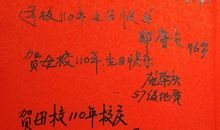 母校110年生日快乐
96岁
贺母校110年,生日快乐
57级地质
贺母校110年校庆